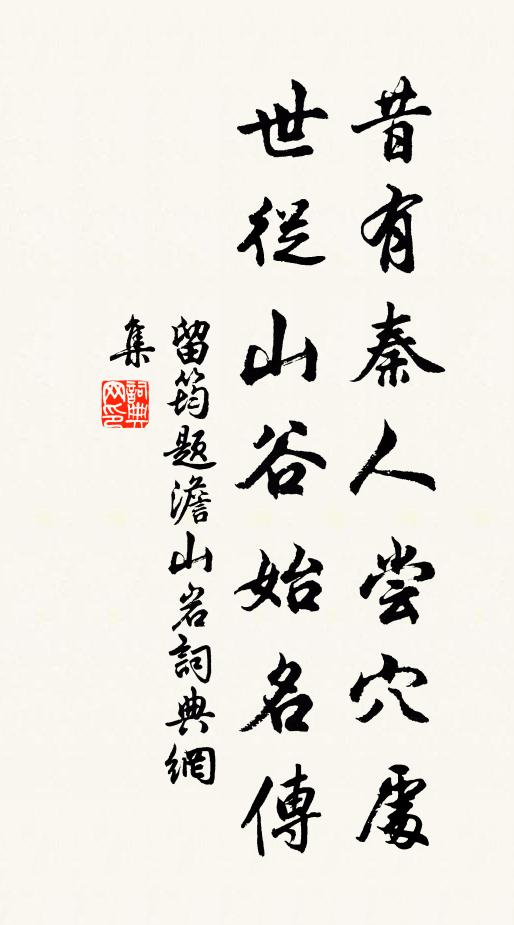 昔有秦人尝穴處
世從山谷始名傳
留筠題澹山岩詞典網
集
詞典
网印